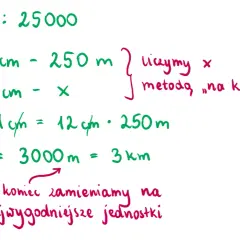 : 25000
cm - 250 m
cm - x
liczymy x
metodą "na k
1 cm = 12 cm · 250 m
= 3000 m = 3 km
koniec zamieniamy na
jwygodniejsze jednostki